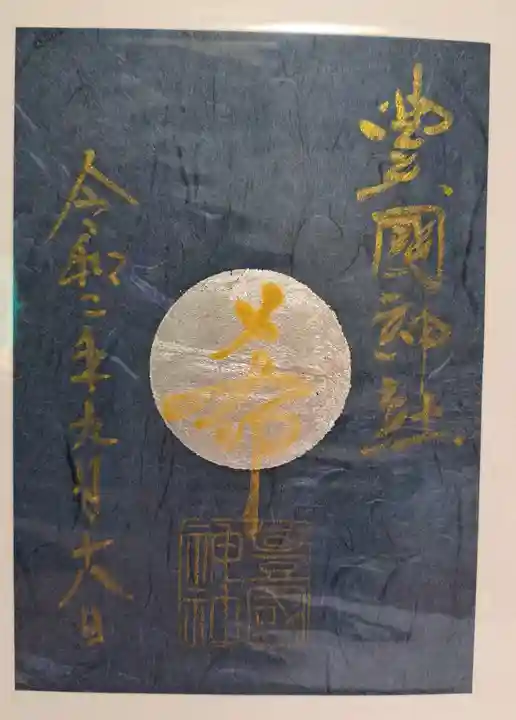 豊國神社
令和二年九月十八日
豊國
神社